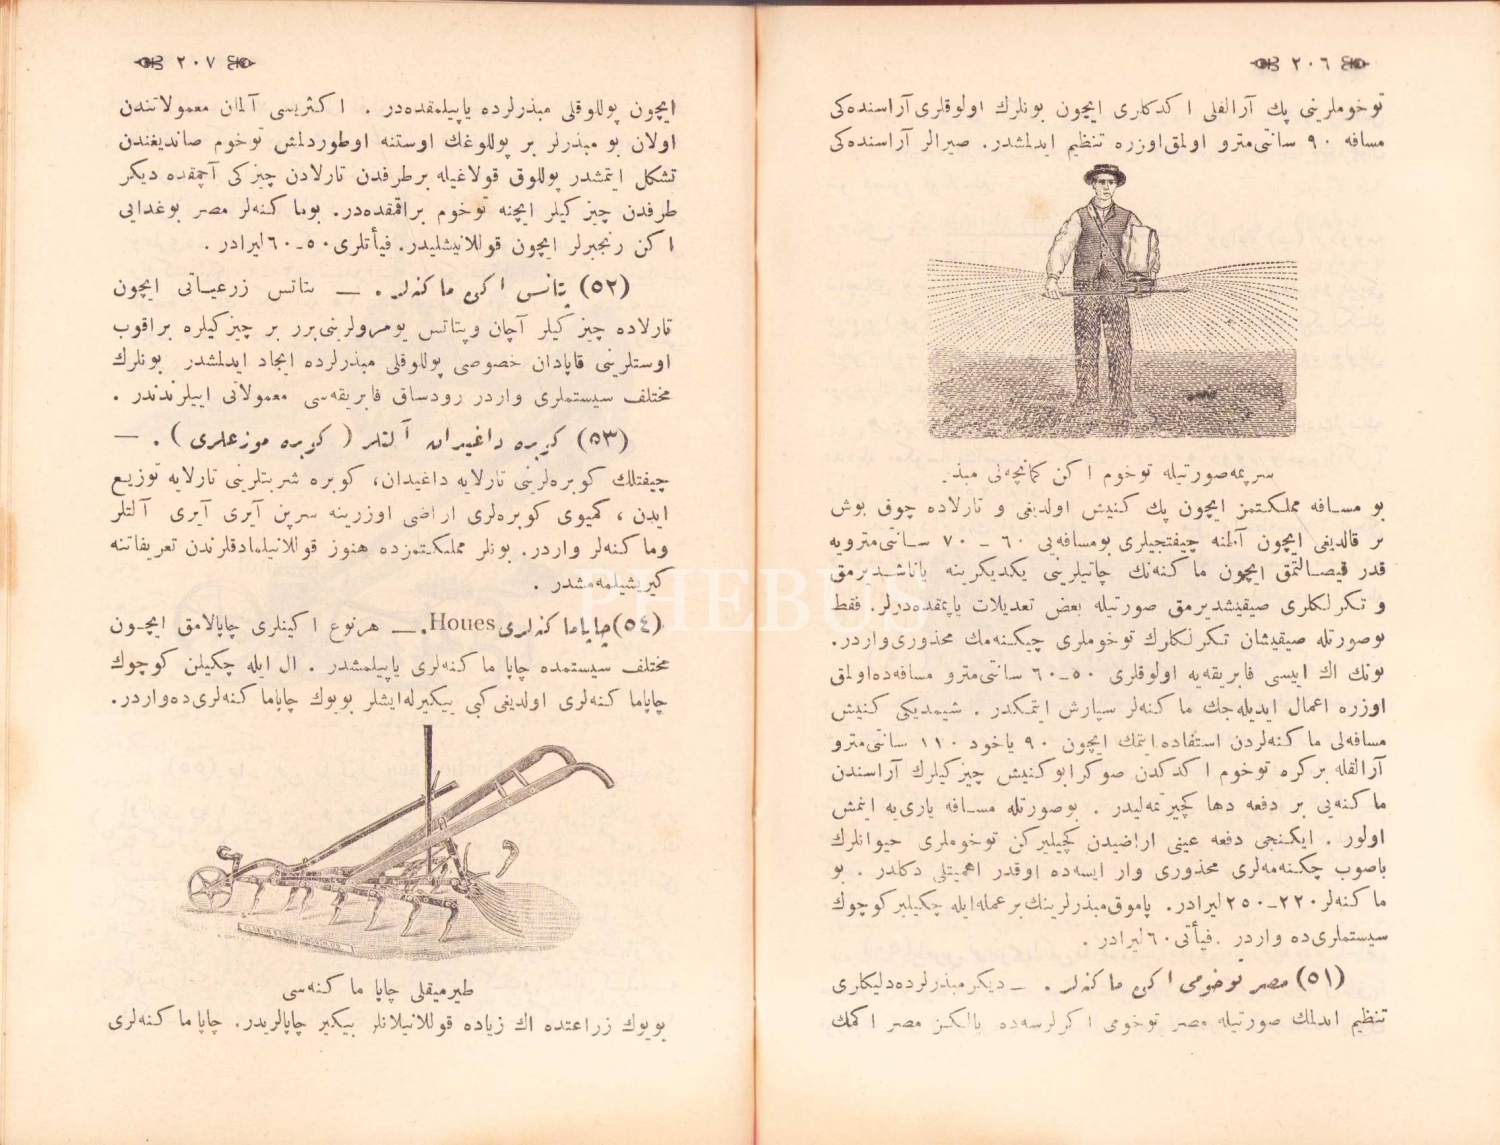 ٢٠٦
توخوملرینی پك آرالقلی اكدكلری ایچون بونلرك اولوقلری آراسنده‌كی
مسافه ٩٠ سانتی‌مترو اولمق اوزره تنظیم ایدلمشدر. صیرالر آراسنده‌كی
سرپمه صورتیله توخوم اكن كمانچه‌لی مبذر
بو مسافه مملكتمز ایچون پك كنیش اولدیغی و تارلاده چوق بوش
یر قالدیغی ایچون آطنه چیفتجیلری بومسافه‌یی ٦٠ ــ ٧٠ سانتی‌مترویه
قدر قیصالتمق ایچون ماكنه‌نك چاتیلرینی یكدیكرینه یاناشدیرمق
و تكرلكلری صیقیشدیرمق صورتیله بعض تعدیلات یاپمقده‌درلر. فقط
بوصورتله صیقیشان تكرلكلرك توخوملری چیكنه‌مك محذوری واردر.
بونك اك اییسی فابریقه‌یه اولوقلری ٥٠ــ٦٠ سانتی‌مترو مسافه‌ده اولمق
اوزره اعمال ایدیله‌جك ماكنه‌لر سپارش ایتمكدر. شیمدیكی كنیش
مسافه‌لی ماكنه‌لردن استفاده ایتمك ایچون ٩٠ یاخود ١١٠ سانتی‌مترو
آرالقله بركره توخوم اكدكدن صوكرا بوكنیش چیزكیلرك آراسندن
ماكنه‌یی بر دفعه دها كچیرتمه‌لیدر. بوصورتله مسافه یاری‌یه اینمش
اولور. ایكنجی دفعه عینی اراضیدن كچیلیركن توخوملری حیوانلرك
باصوب چكنه‌مه‌لری محذوری وار ایسه‌ده اوقدر اهمیتلی دكلدر. بو
ماكنه‌لر ٢٢٠ــ٢٥٠ لیرادر. پاموق مبذرلرینك برعمله ایله چكیلیر كوچوك
سیستملری‌ده واردر. فیأتی ٦٠ لیرادر.
(٥١) مصر توخومی اكن ماكنه‌لر. ــ دیكر مبذرلرده دلیكلری
تنظیم ایدلمك صورتیله مصر توخومی اكرلرسه‌ده یالكز مصر اكمك
٢٠٧
ایچون پوللوقلی مبذرلرده یاپیلمقده‌در. اكثریسی آلمان معمولاتندن
اولان بو مبذرلر بر پوللوغك اوستنه اوطوردلمش توخوم صاندیغندن
تشكل ایتمشدر پوللوق قولاغیله برطرفدن تارلادن چیزكی آچمقده دیكر
طرفدن چیزكیلر ایچنه توخوم براقمقده‌در. بوماكنه‌لر مصر بوغدایی
اكن رنجبرلر ایچون قوللانیشلیدر. فیأتلری ٥٠ــ٦٠ لیرادر.
(٥٢) پتاتس اكن ماكنه‌لر. ــ پتاتس زرعیاتی ایچون
تارلاده چیزكیلر آچان وپتاتس یومرولرینی برر بر چیزكیلره براقوب
اوستلرینی قاپادان خصوصی پوللوقلی مبذرلرده ایجاد ایدلمشدر بونلرك
مختلف سیستملری واردر رودساق فابریقه‌سی معمولاتی اییلرندندر.
(٥٣) كوبره داغیدان آلتلر (كوبره موزعلری). ــ
چیفتلك كوبره‌لرینی تارلایه داغیدان، كوبره شربتلرینی تارلایه توزیع
ایدن، كیمیوی كوبره‌لری اراضی اوزرینه سرپن آیری آیری آلتلر
وماكنه‌لر واردر. بونلر مملكتمزده هنوز قوللانیلمادقلرندن تعریفاتنه
كیریشیلمه‌مشدر.
(٥٤) چاپا ماكنه‌لری Houes. ــ هرنوع اكینلری چاپالامق ایچون
مختلف سیستمده چاپا ماكنه‌لری یاپیلمشدر. ال ایله چكیلن كوچوك
چاپا ماكنه‌لری اولدیغی كبی بیكیرله ایشلر بویوك چاپا ماكنه‌لری‌ده واردر.
طیرمیقلی چاپا ماكنه‌سی
بویوك زراعتده اك زیاده قوللانیلانلر بیكیر چاپالریدر. چاپا ماكنه‌لری
PHEBUS